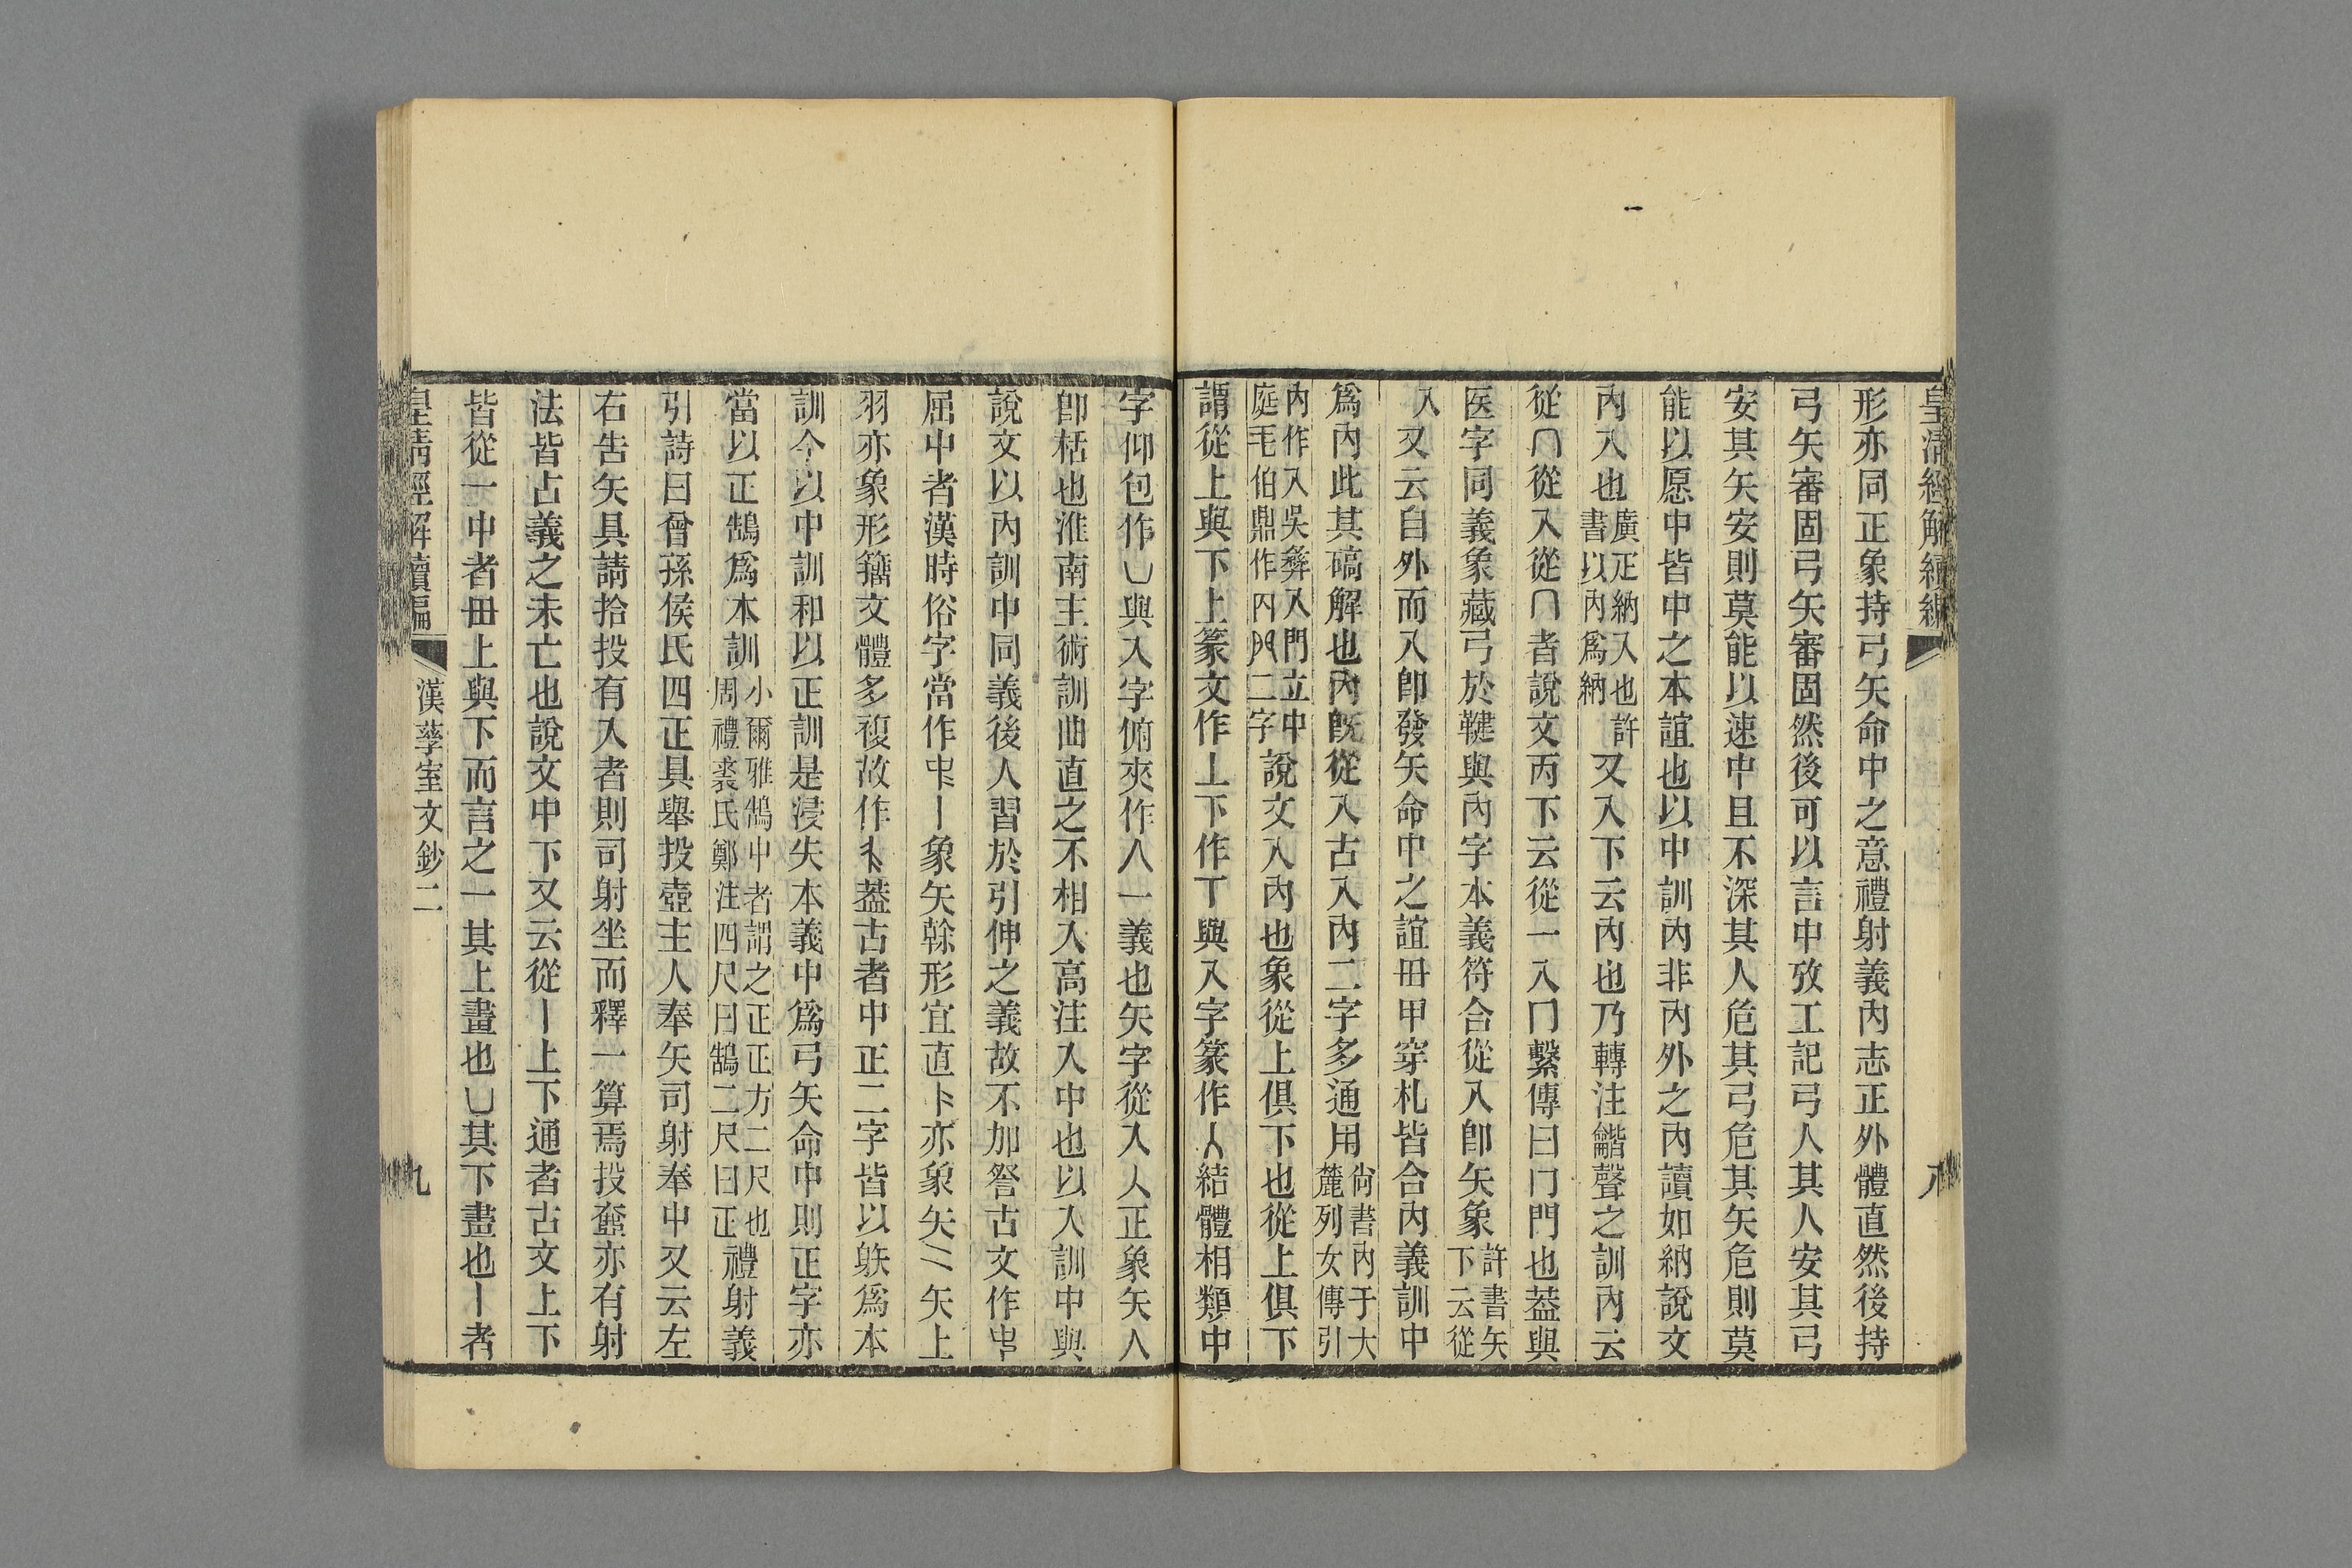 皇清經解續編
八
形亦同正象持弓矢命中之意禮射義內志正外體直然後持
弓矢審固弓矢審固然後可以言中攷工記弓人其人安其弓
安其矢安則莫能以速中且不深其人危其弓危其矢危則莫
能以愿中皆中之本誼也以中訓內非內外之內讀如納說文
內入也廣疋納入也許書以內為納又入下云內也乃轉注龤聲之訓內云
從冂從入從冂者說文丙下云從一入冂繫傳曰冂門也葢與
医字同義象藏弓於鞬與內字本義符合從入卽矢象許書矢下云從
入又云自外而入卽發矢命中之誼毌甲穿札皆合內義訓中
爲內此其碻解也內旣從入古入內二字多通用尙書內于大麓列女傳引
內作入吳彝入門立中庭毛伯鼎作內二字說文入內也象從上俱下也從上俱下
謂從上與下上篆文作丄下作丅與入字篆作人結體相類中
字仰包作凵與入字俯夾作入一義也矢字從入入正象矢入
卽栝也淮南主術訓曲直之不相入高注入中也以入訓中與
說文以內訓中同義後人習於引伸之義故不加詧古文作
屈中者漢時俗字當作丨象矢榦形宜直亦象矢矢上
羽亦象形籒文體多複故作葢古者中正二字皆以躲爲本
訓今以中訓和以正訓是浸失本義中爲弓矢命中則正字亦
當以正鵠爲本訓小爾雅鵠中者謂之正正方二尺也周禮裘氏鄭注四尺曰鵠二尺曰正禮射義
引詩曰曾孫侯氏四正具舉投壺主人奉矢司射奉中又云左
右告矢具請拾投有入者則司射坐而釋一算焉投壷亦有射
法皆古義之未亡也說文中下又云從丨上下通者古文上下
皆從一中者毌上與下而言之一其上畫也凵其下畫也丨者
皇清經解續編
漢孳室文鈔二
九